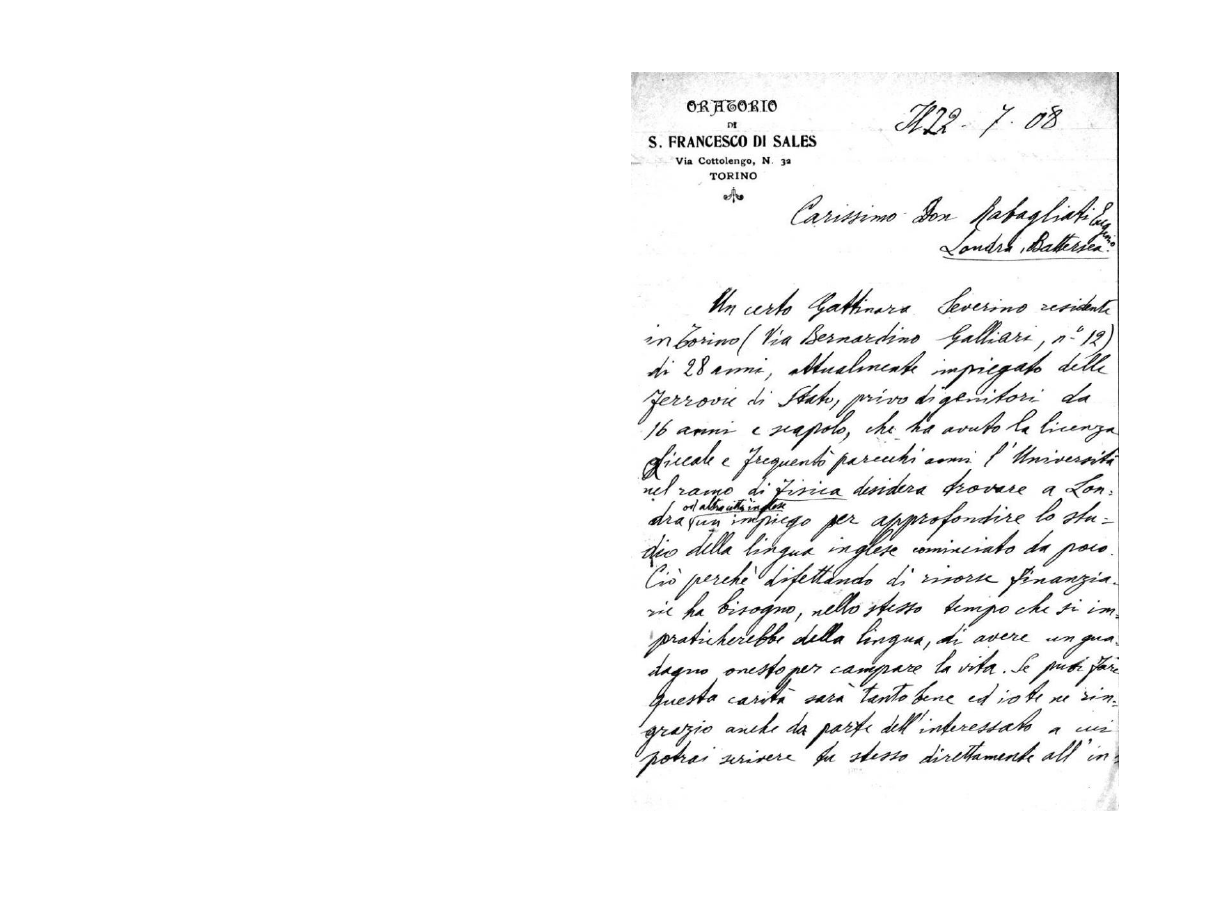 ORATORIO
DI
S. FRANCESCO DI SALES
Via Cottolengo, N. 32
TORINO
Il 22 - 7 - 08
Carissimo Don Rabagliati Eugenio
Londra, Battersea.
Un certo Gattinara Severino residente
in Torino (Via Bernardino Galliari, n.º 12)
di 28 anni, attualmente impiegato delle
Ferrovie di Stato, privo di genitori da
16 anni e scapolo, che ha avuto la licenza
liceale e frequentò parecchi anni l'Università
nel ramo di Fisica desidera trovare a Lon-
od altra città inglese
dra un impiego per approfondire lo stu-
dio della lingua inglese cominciato da poco.
Ciò perchè difettando di risorse finanzia-
rie ha bisogno, nello stesso tempo che si im-
praticherebbe della lingua, di avere un gua-
dagno onesto per campare la vita. Se puoi fare
questa carità sarà tanto bene ed io te ne rin-
grazio anche da parte dell'interessato a cui
potrai scrivere tu stesso direttamente all'in-